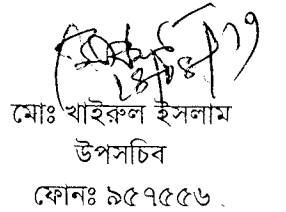 মোঃ খাইরুল ইসলাম
উপসচিব
ফোনঃ ৯৫৭৫৫৬